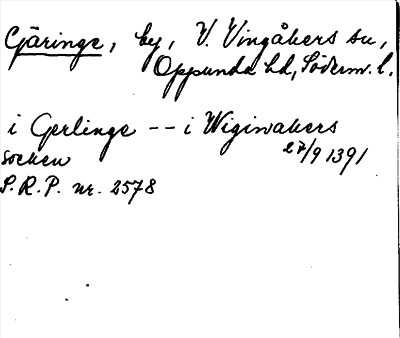 Gäringe, by, V. Vingåkers sn,
Oppunda hd, Söderm. l.
i Gerlinge -- i Wiginakers
socken 27/9 1391
S.R.P. nr. 2578